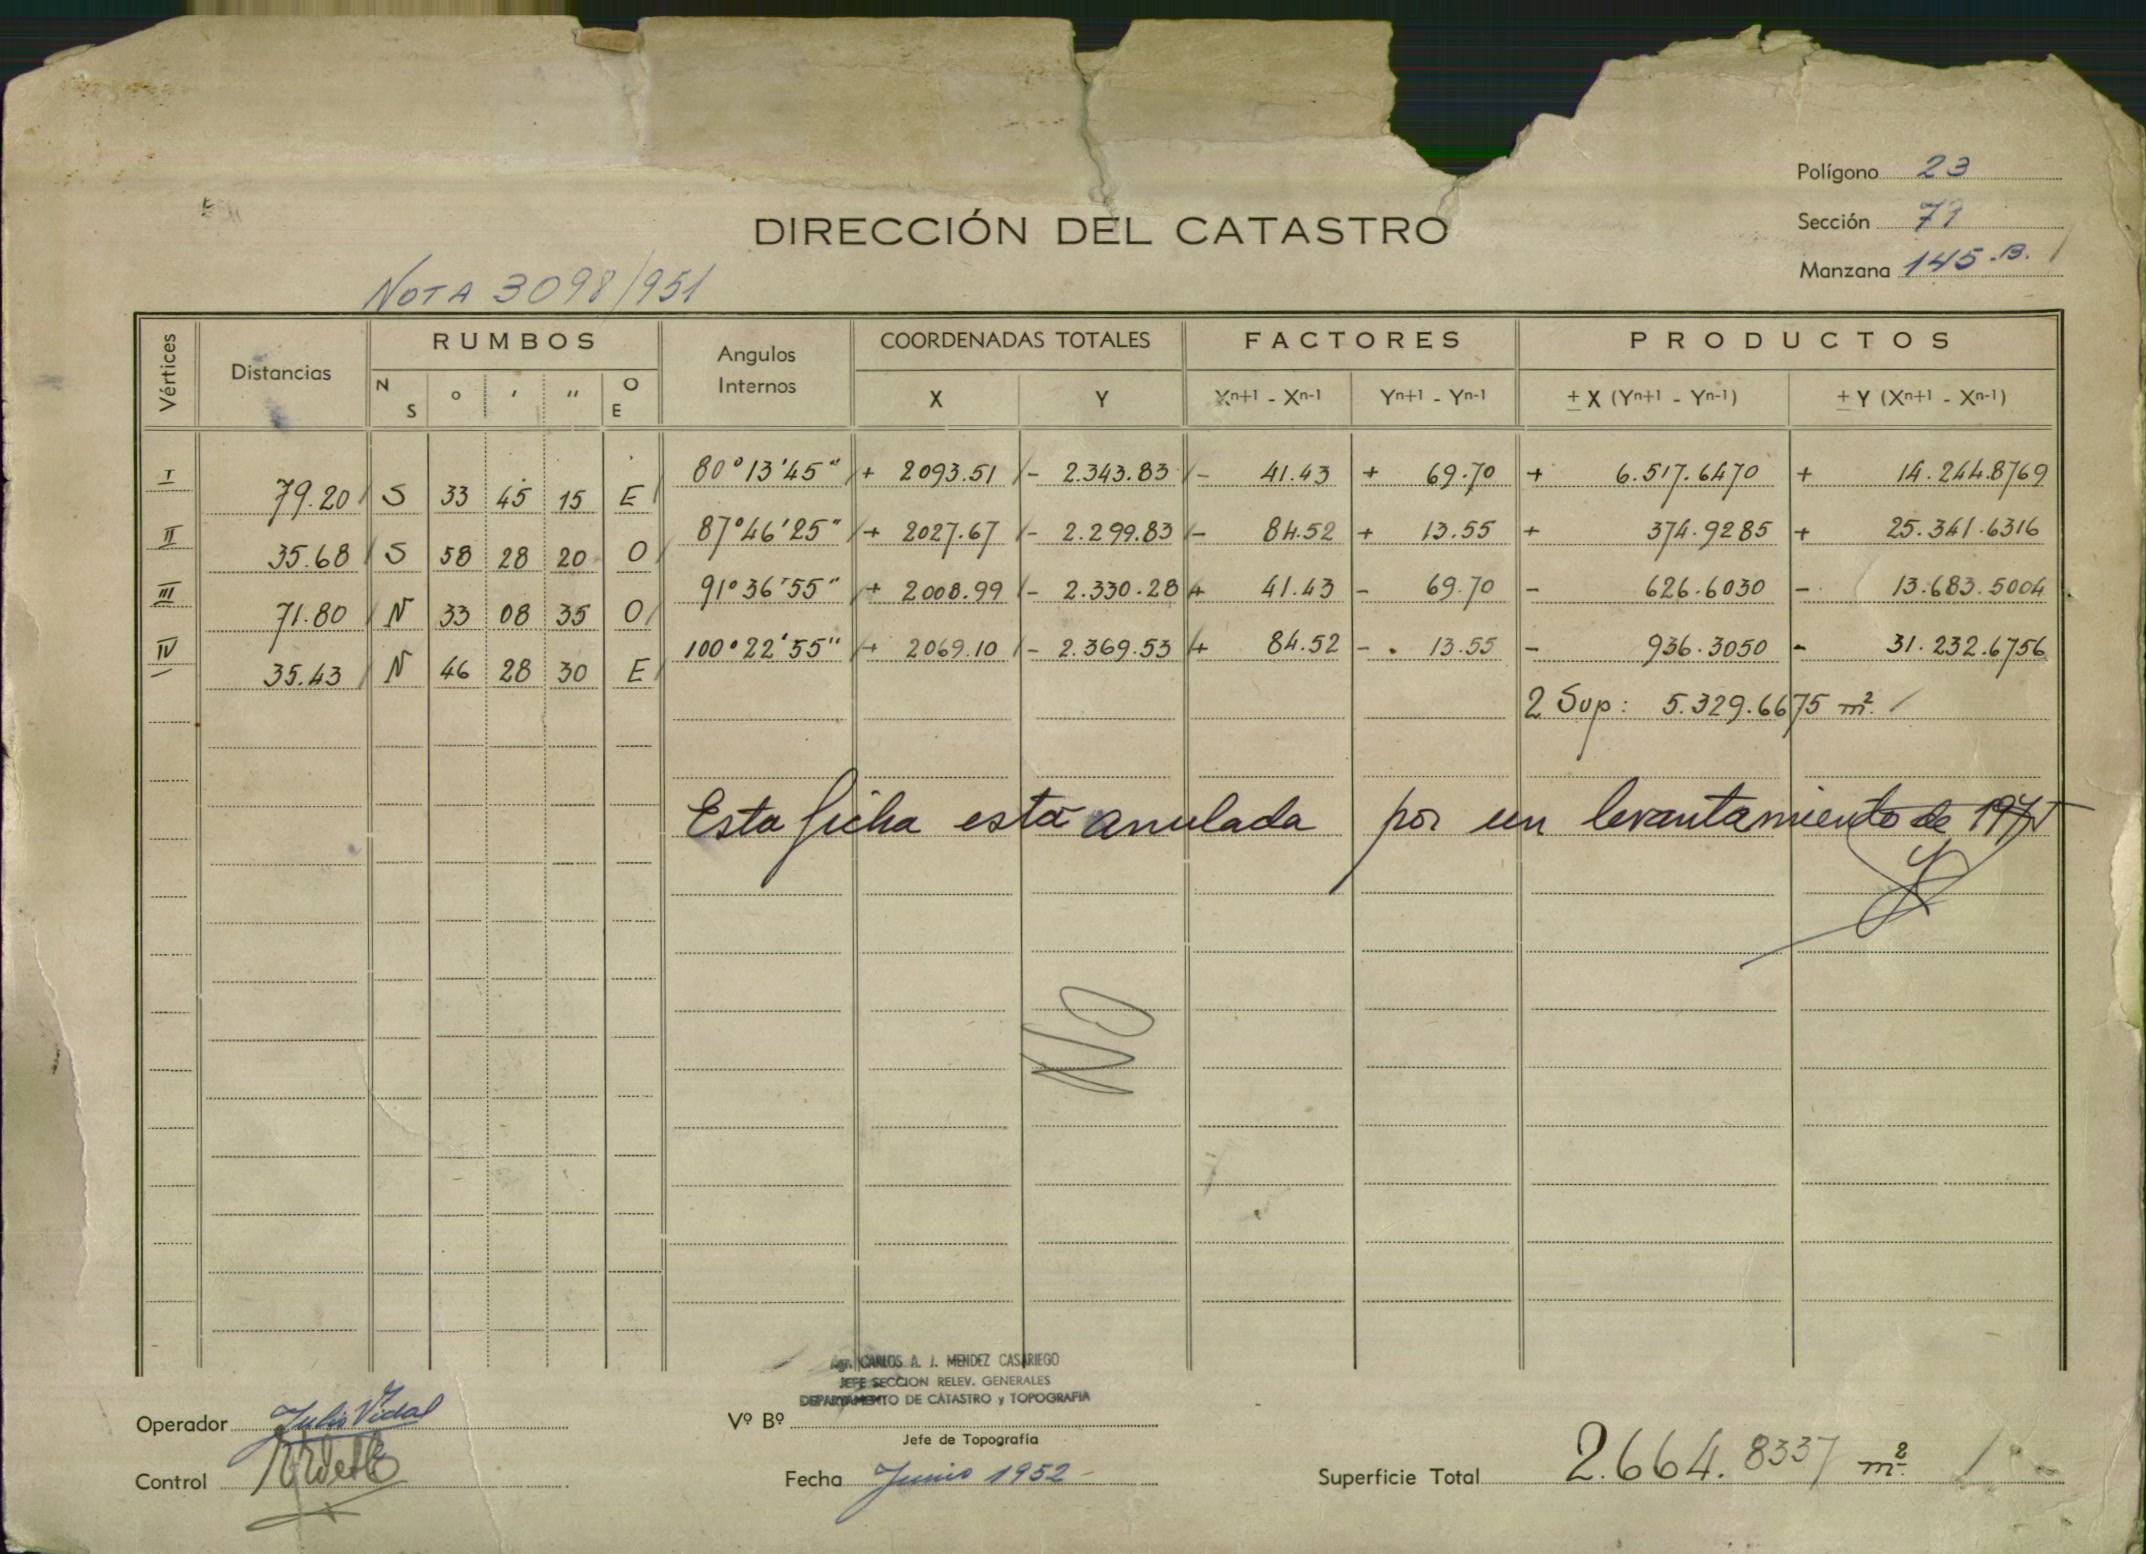 Polígono 23
DIRECCIÓN DEL CATASTRO
Sección 79
Manzana 145-B.
NOTA 3098/951
Vértices Distancias RUMBOS Angulos Internos COORDENADAS TOTALES FACTORES PRODUCTOS
N S ° ' " O E X Y Xn+1 - Xn-1 Yn+1 - Yn-1 ± X (Yn+1 - Yn-1) ± Y (Xn+1 - Xn-1)
I 80°13'45" + 2093.51 - 2.343.83 - 41.43 + 69.70 + 6.517.6470 + 14.244.8769
79.20 S 33 45 15 E
II 87°46'25" + 2027.67 - 2.299.83 - 84.52 + 13.55 + 374.9285 + 25.341.6316
35.68 S 58 28 20 O
III 91°36'55" + 2008.99 - 2.330.28 + 41.43 - 69.70 - 626.6030 - 13.683.5004
71.80 N 33 08 35 O
IV 100°22'55" + 2069.10 - 2.369.53 + 84.52 - 13.55 - 936.3050 - 31.232.6756
35.43 N 46 28 30 E
2 Sup: 5.329.6675 m².
Esta ficha está anulada por un levantamiento de
NO
CARLOS A. J. MENDEZ CASARIEGO
JEFE SECCION RELEV. GENERALES
DEPARTAMENTO DE CATASTRO y TOPOGRAFIA
Operador Julio Vidal
Vº Bº
Jefe de Topografía
Control
Fecha Junio 1952
Superficie Total 2.664.8337 m².